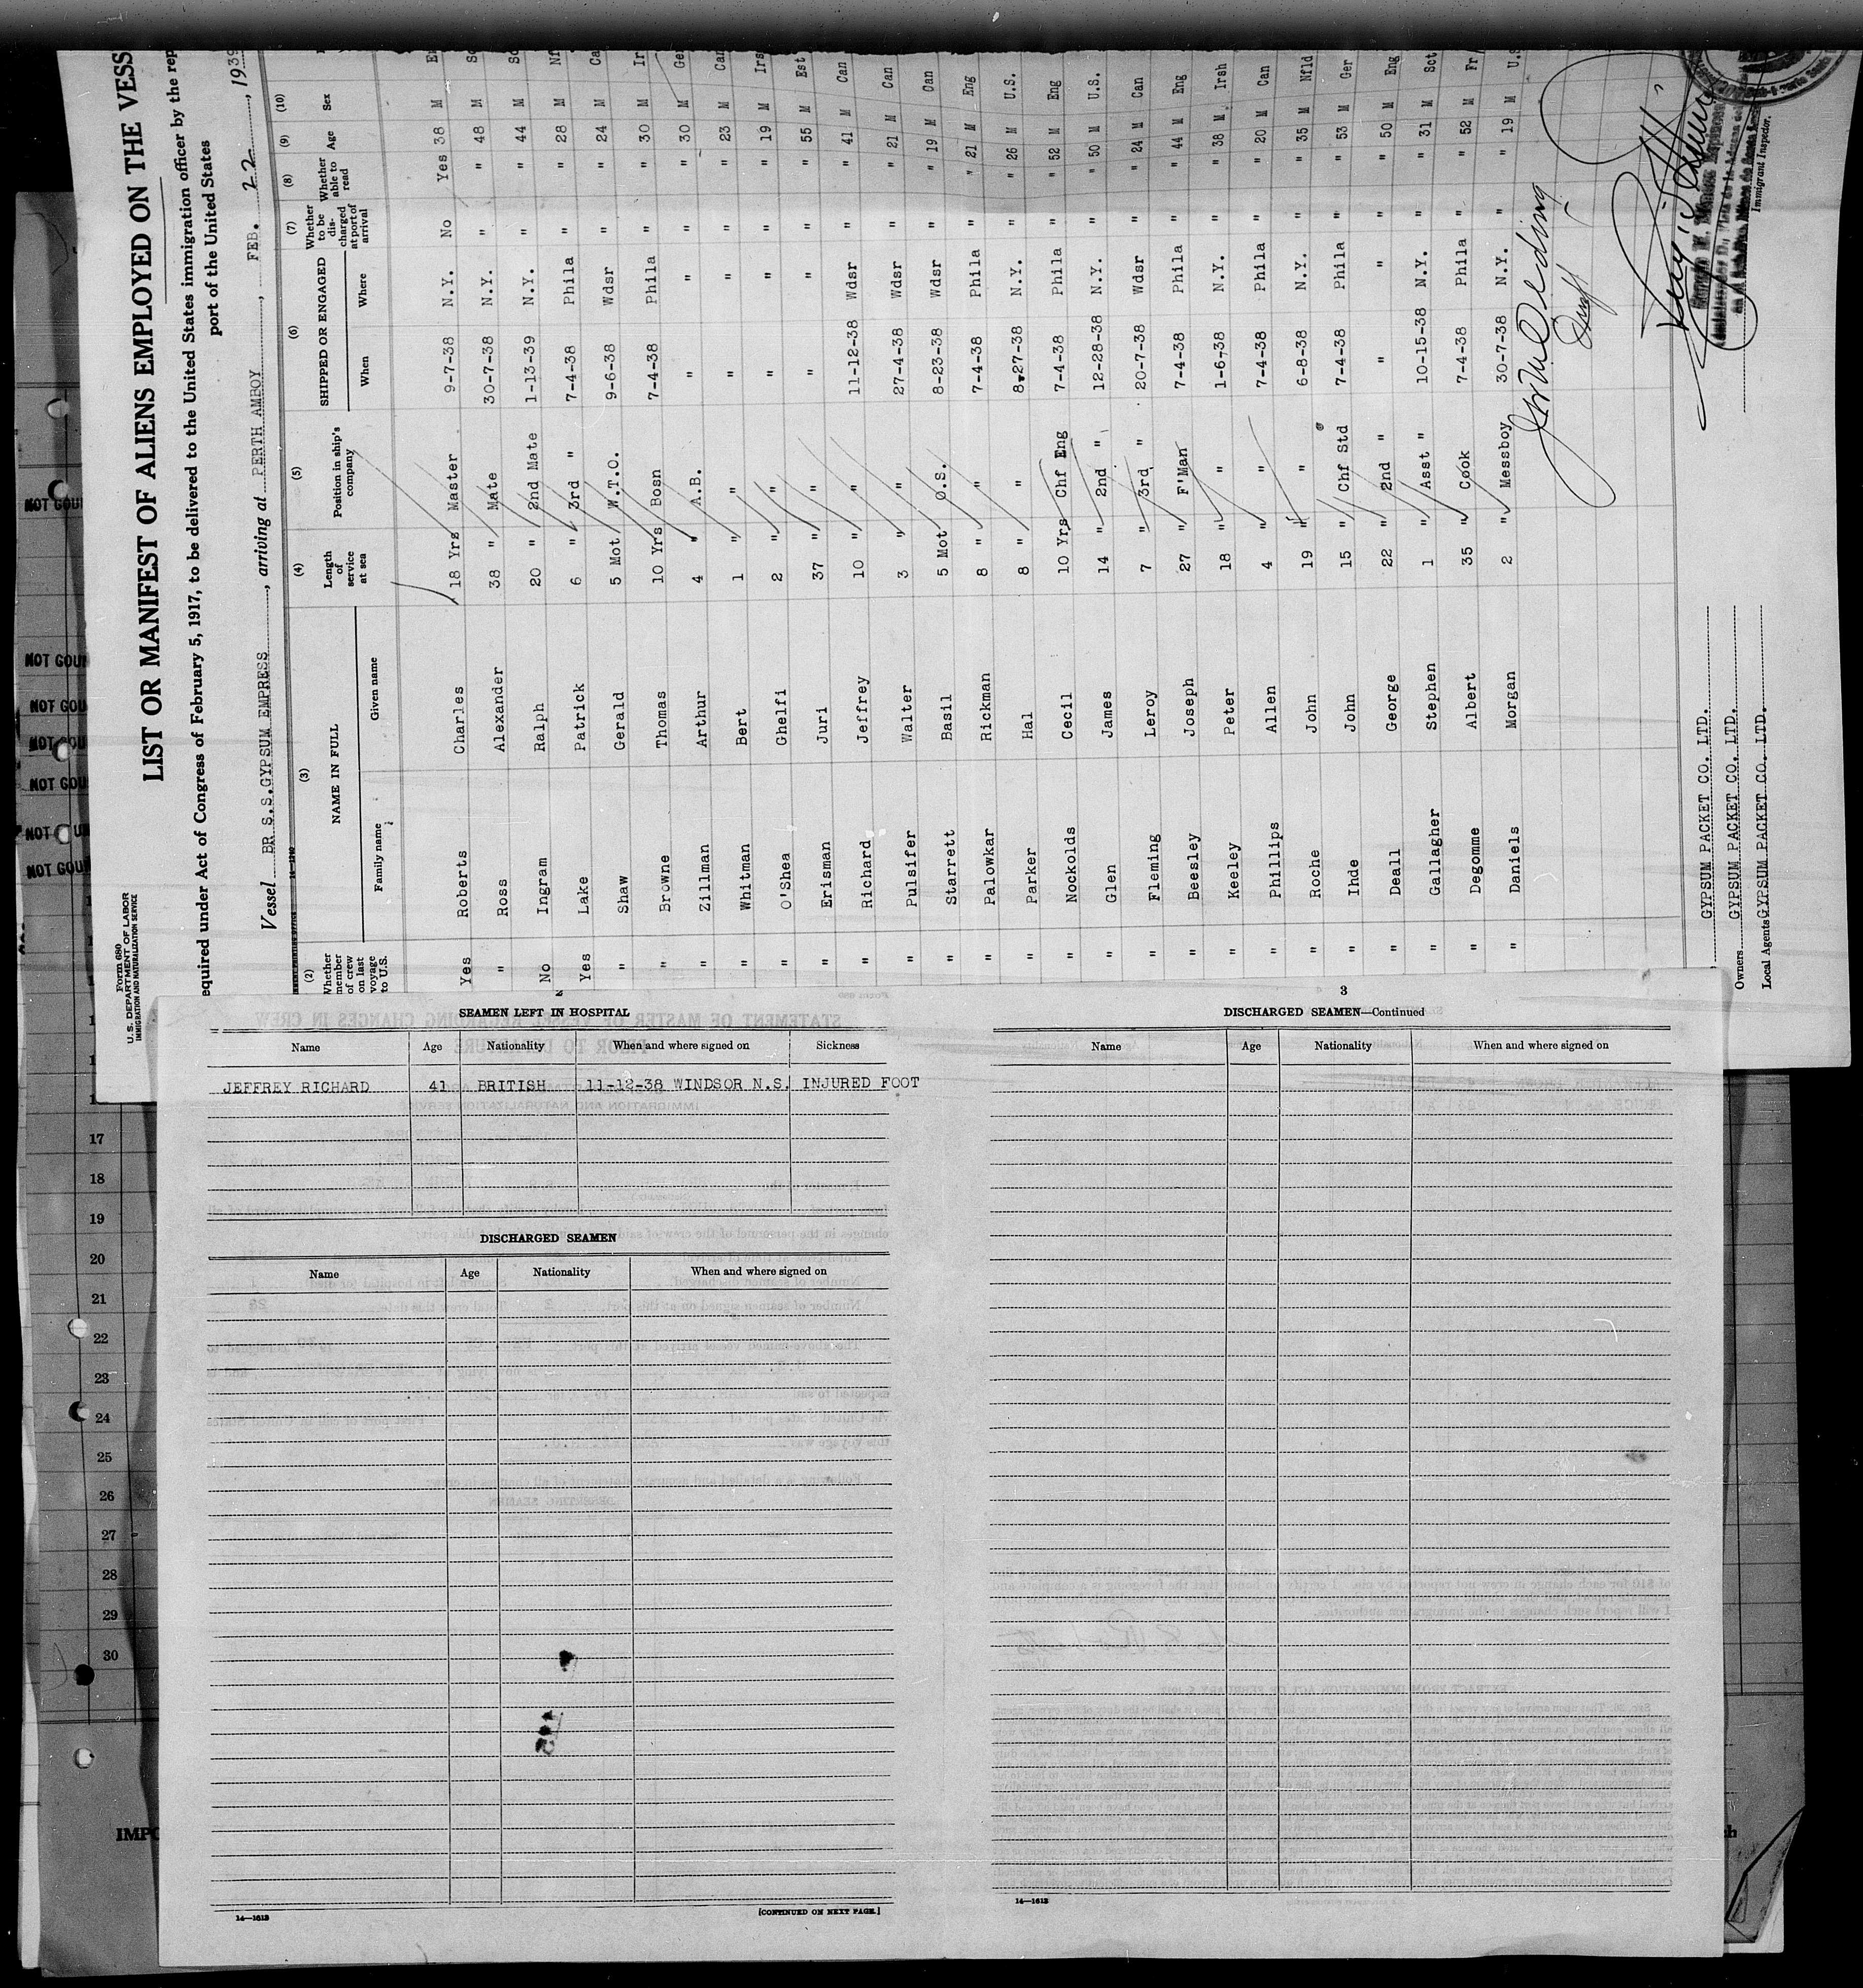 Form 680
U. S. DEPARTMENT OF LABOR
IMMIGRATION AND NATURALIZATION SERVICE
LIST OR MANIFEST OF ALIENS EMPLOYED ON THE VESS
equired under Act of Congress of February 5, 1917, to be delivered to the United States immigration officer by the rep
port of the United States
Vessel BR S.S.GYPSUM EMPRESS, arriving at PERTH AMBOY, FEB. 22, 1939
14-1240
(2) (3) (4) (5) (6) (7) (8) (9) (10)
Whether member of crew on last voyage to U.S.
NAME IN FULL
Family name Given name
Length of service at sea
Position in ship's company
SHIPPED OR ENGAGED
When Where
Whether to be discharged at port of arrival
Whether able to read
Age
Sex
Yes Roberts Charles 18 Yrs Master 9-7-38 N.Y. No Yes 38 M
" Ross Alexander 38 " Mate 30-7-38 N.Y. " " 48 M Sc
No Ingram Ralph 20 " 2nd Mate 1-13-39 N.Y. " " 44 M Sc
Yes Lake Patrick 6 " 3rd " 7-4-38 Phila " " 28 M Nf
" Shaw Gerald 5 Mot W.T.O. 9-6-38 Wdsr " " 24 M Ca
" Browne Thomas 10 Yrs Bosn 7-4-38 Phila " " 30 M Ir
" Zillman Arthur 4 " A.B. " " " " 30 M Ge
" Whitman Bert 1 " " " " " " 23 M Can
" O'Shea Ghelfi 2 " " " " " " 19 M Irs
" Erisman Juri 37 " " " " " " 55 M Est
" Richard Jeffrey 10 " " 11-12-38 Wdsr " " 41 M Can
" Pulsifer Walter 3 " " 27-4-38 Wdsr " " 21 M Can
" Starrett Basil 5 Mot O.S. 8-23-38 Wdsr " " 19 M Can
" Palowkar Rickman 8 " " 7-4-38 Phila " " 21 M Eng
" Parker Hal 8 " " 8-27-38 N.Y. " " 26 M U.S.
" Nockolds Cecil 10 Yrs Chf Eng 7-4-38 Phila " " 52 M Eng
" Glen James 14 " 2nd " 12-28-38 N.Y. " " 50 M U.S.
" Fleming Leroy 7 " 3rd " 20-7-38 Wdsr " " 24 M Can
" Beesley Joseph 27 " F'Man 7-4-38 Phila " " 44 M Eng
" Keeley Peter 18 " " 1-6-38 N.Y. " " 38 M Irsh
" Phillips Allen 4 " " 7-4-38 Phila " " 20 M Can
" Roche John 19 " " 6-8-38 N.Y. " " 35 M Nfld
" Ihde John 15 " Chf Std 7-4-38 Phila " " 53 M Ger
" Deall George 22 " 2nd " " " " " 50 M Eng
" Gallagher Stephen 1 " Asst " 10-15-38 N.Y. " " 31 M Sct
" Degomme Albert 35 " Cook 7-4-38 Phila " " 52 M Fr
" Daniels Morgan 2 " Messboy 30-7-38 N.Y. " " 19 M U.S
GYPSUM PACKET CO. LTD.
Owners GYPSUM PACKET CO. LTD.
Local Agents GYPSUM PACKET CO. LTD.
Immigrant Inspector.
NOT COUN
NOT COUN
NOT COU
NOT COU
NOT COU
NOT
NOT COU
2
SEAMEN LEFT IN HOSPITAL
Name Age Nationality When and where signed on Sickness
JEFFREY RICHARD 41 BRITISH 11-12-38 WINDSOR N.S. INJURED FOOT
DISCHARGED SEAMEN
Name Age Nationality When and where signed on
14—1613
[CONTINUED ON NEXT PAGE.]
3
DISCHARGED SEAMEN—Continued
Name Age Nationality When and where signed on
14—1613
17
18
19
20
21
22
23
24
25
26
27
28
29
30
IMPO